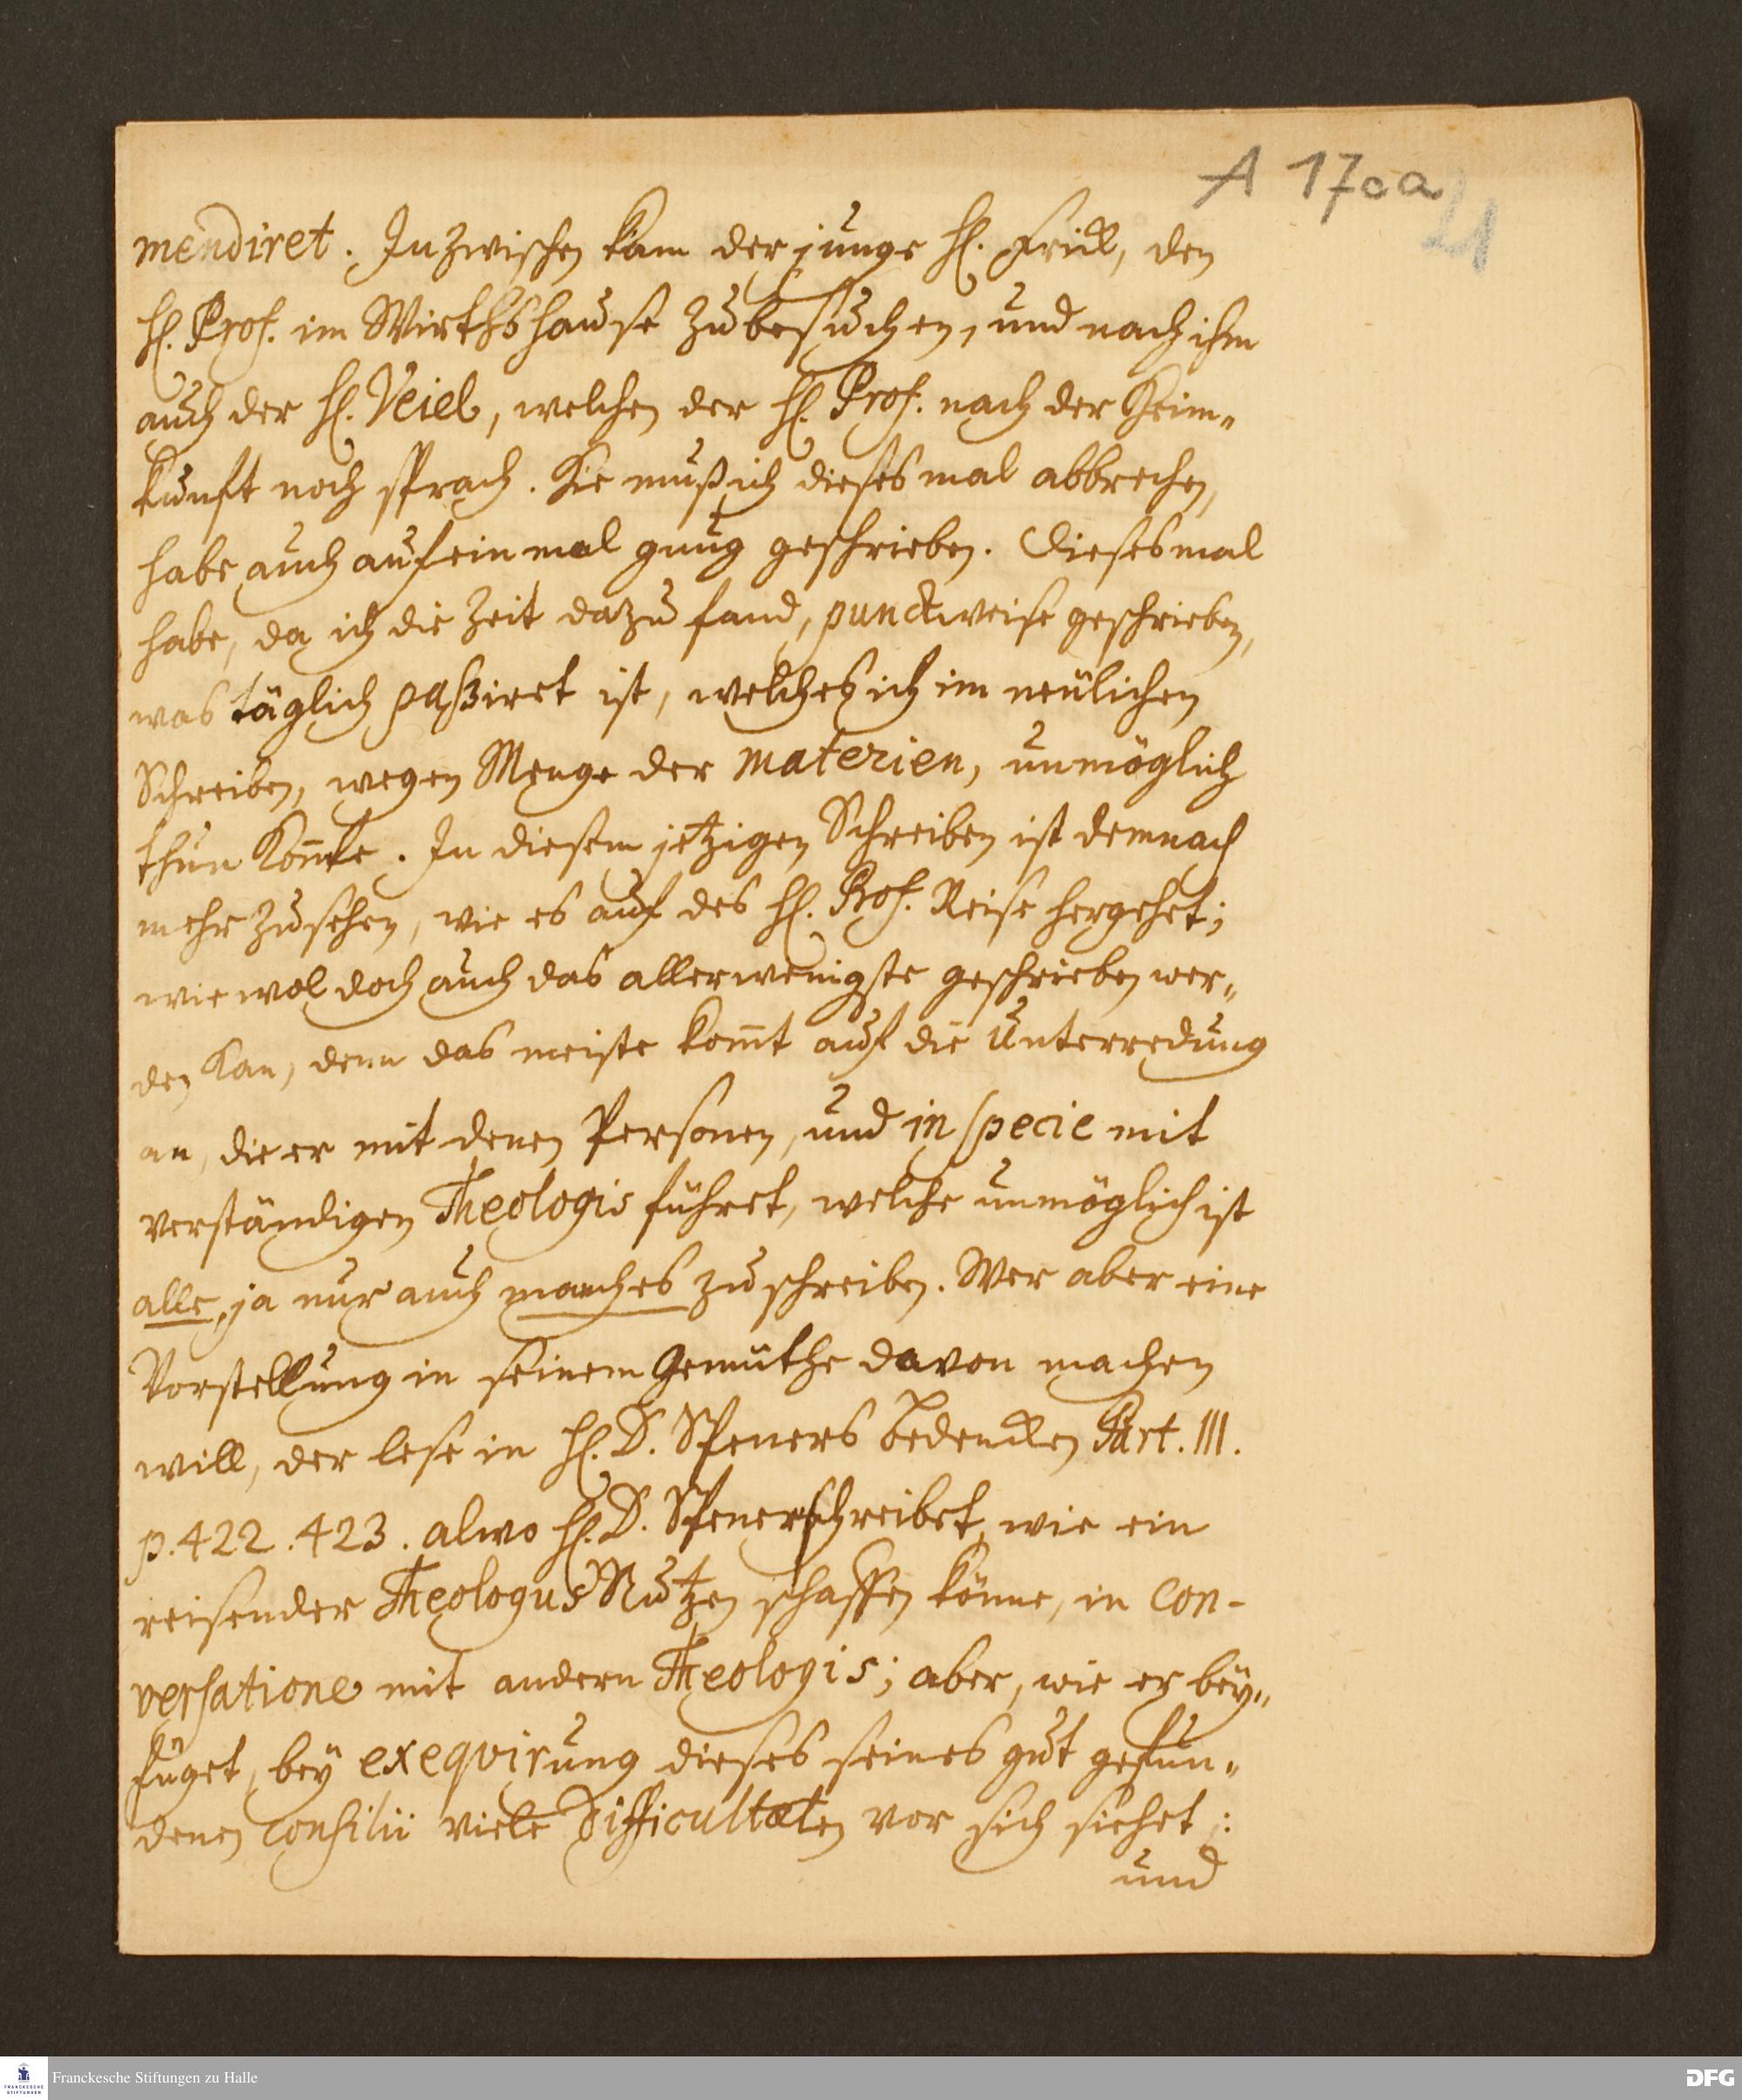 A 170a
21
mendiret. Inzwischen kam der junge H. Frick, den
H. Prof. im Wirthshause zu besuchen, und nach ihm
auch der H. Veiel, welchen der H. Prof. nach der Heim„
kunft noch sprach. Hie muß ich dieses mal abbrechen,
habe auch auf ein mal gnug geschrieben. Dieses mal
habe, da ich die Zeit dazu fand, punctweise geschrieben,
was täglich paßiret ist, welches ich im neülichen
Schreiben, wegen Menge der Materien, unmöglich
thun kon̄te. In diesem jetzigen Schreiben ist demnach
mehr zu sehen, wie es auf des H. Prof. Reise hergehet;
wie wol doch auch das allerwenigste geschrieben wer„
den kan, denn das meiste kom̄t auf die Unterredung
an, die er mit denen Personen, und in specie mit
verständigen Theologis führet, welche unmöglich ist
alle, ja nur auch manches zu schreiben. Wer aber eine
Vorstellung in seinem Gemüthe davon machen
will, der lese in H. D. Speners Bedencken Part. III.
p. 422. 423. alwo H. D. Spener schreibet, wie ein
reisender Theologus Nutzen schaffen könne, in con-
versatione mit andern Theologis; aber, wie er bey„
füget, bey exeqvirung dieses seines gut gefun„
denen consilii viele Difficultæten vor sich siehet:
und
Franckesche Stiftungen zu Halle
FRANCKESCHE
STIFTUNGEN
DFG